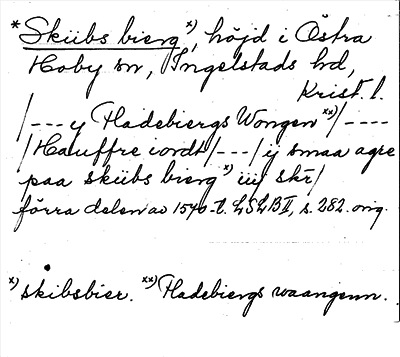 *Skiibs bierg x), höjd i Östra
Hoby sn, Ingelstads hd,
Krist. l.
/--- y Hadebiergs Wongen xx)/----
/Hauffre iordt/---/ij smaa agre
paa skiibs bierg x) iiij skr/
förra delen av 1540-t. LSLB II, s. 282. orig.
x) skibsbier. xx) Hadebiergs waangenn.